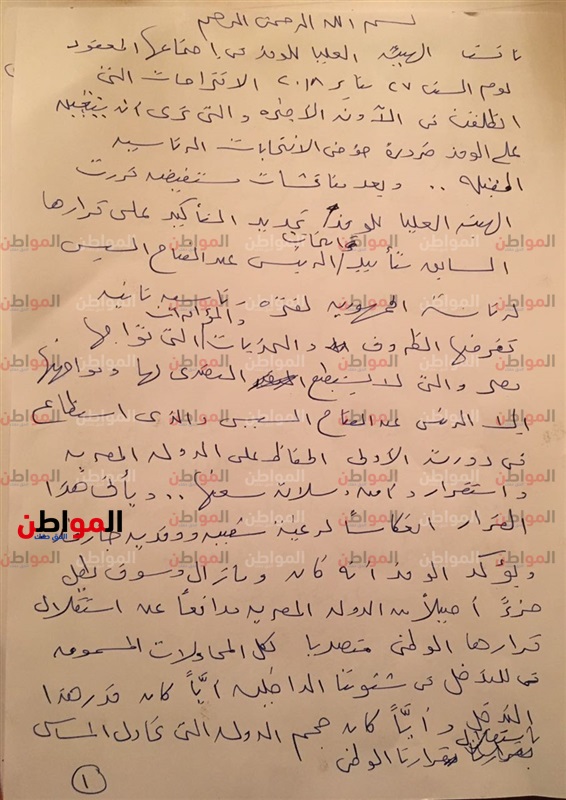 بسم الله الرحمن الرحيم
ناقشت الهيئه العليا للوفد فى اجتماعها المعقود
يوم السبت ٢٧ يناير ٢٠١٨ الاقتراحات التى
انطلقت فى الآونه الاخيره والتى ترى انه ينبغى
على الوفد ضرورة خوض الانتخابات الرئاسيه
المقبله .. وبعد مناقشات مستفيضه قررت
الهيئه العليا للوفد تجديد التأكيد على قرارها
السابق بتأييد / الرئيس عبد الفتاح السيسى
انتخابات
لرئاسة الجمهوريه لفتره رئاسيه ثانيه
تفرضها الظروف والتحديات والمؤامرات التى تواجها
مصر والتى لا يستطيع التصدى لها ومواجهتها
إلا الرئيس عبد الفتاح السيسى والذى استطاع
فى دورته الاولى الحفاظ على الدوله المصريه
واستقرار وأمن وسلامة شعبها .. ويأتى هذا
القرار انعكاساً لرغبة شعبيه ووفديه
ويؤكد الوفد أنه كان ومازال وسوف يظل
جزءً أصيلاً من الدوله المصريه مدافعاً عن استقلال
قرارها الوطنى متصديا لكل المحاولات المسمومه
فى للتدخل فى شئوننا الداخليه أيًّا كان قدر هذا
التدخل وأيًّا كان حجم الدوله التى تحاول المساس
باستقلال قرارنا الوطنى
١
المواطن